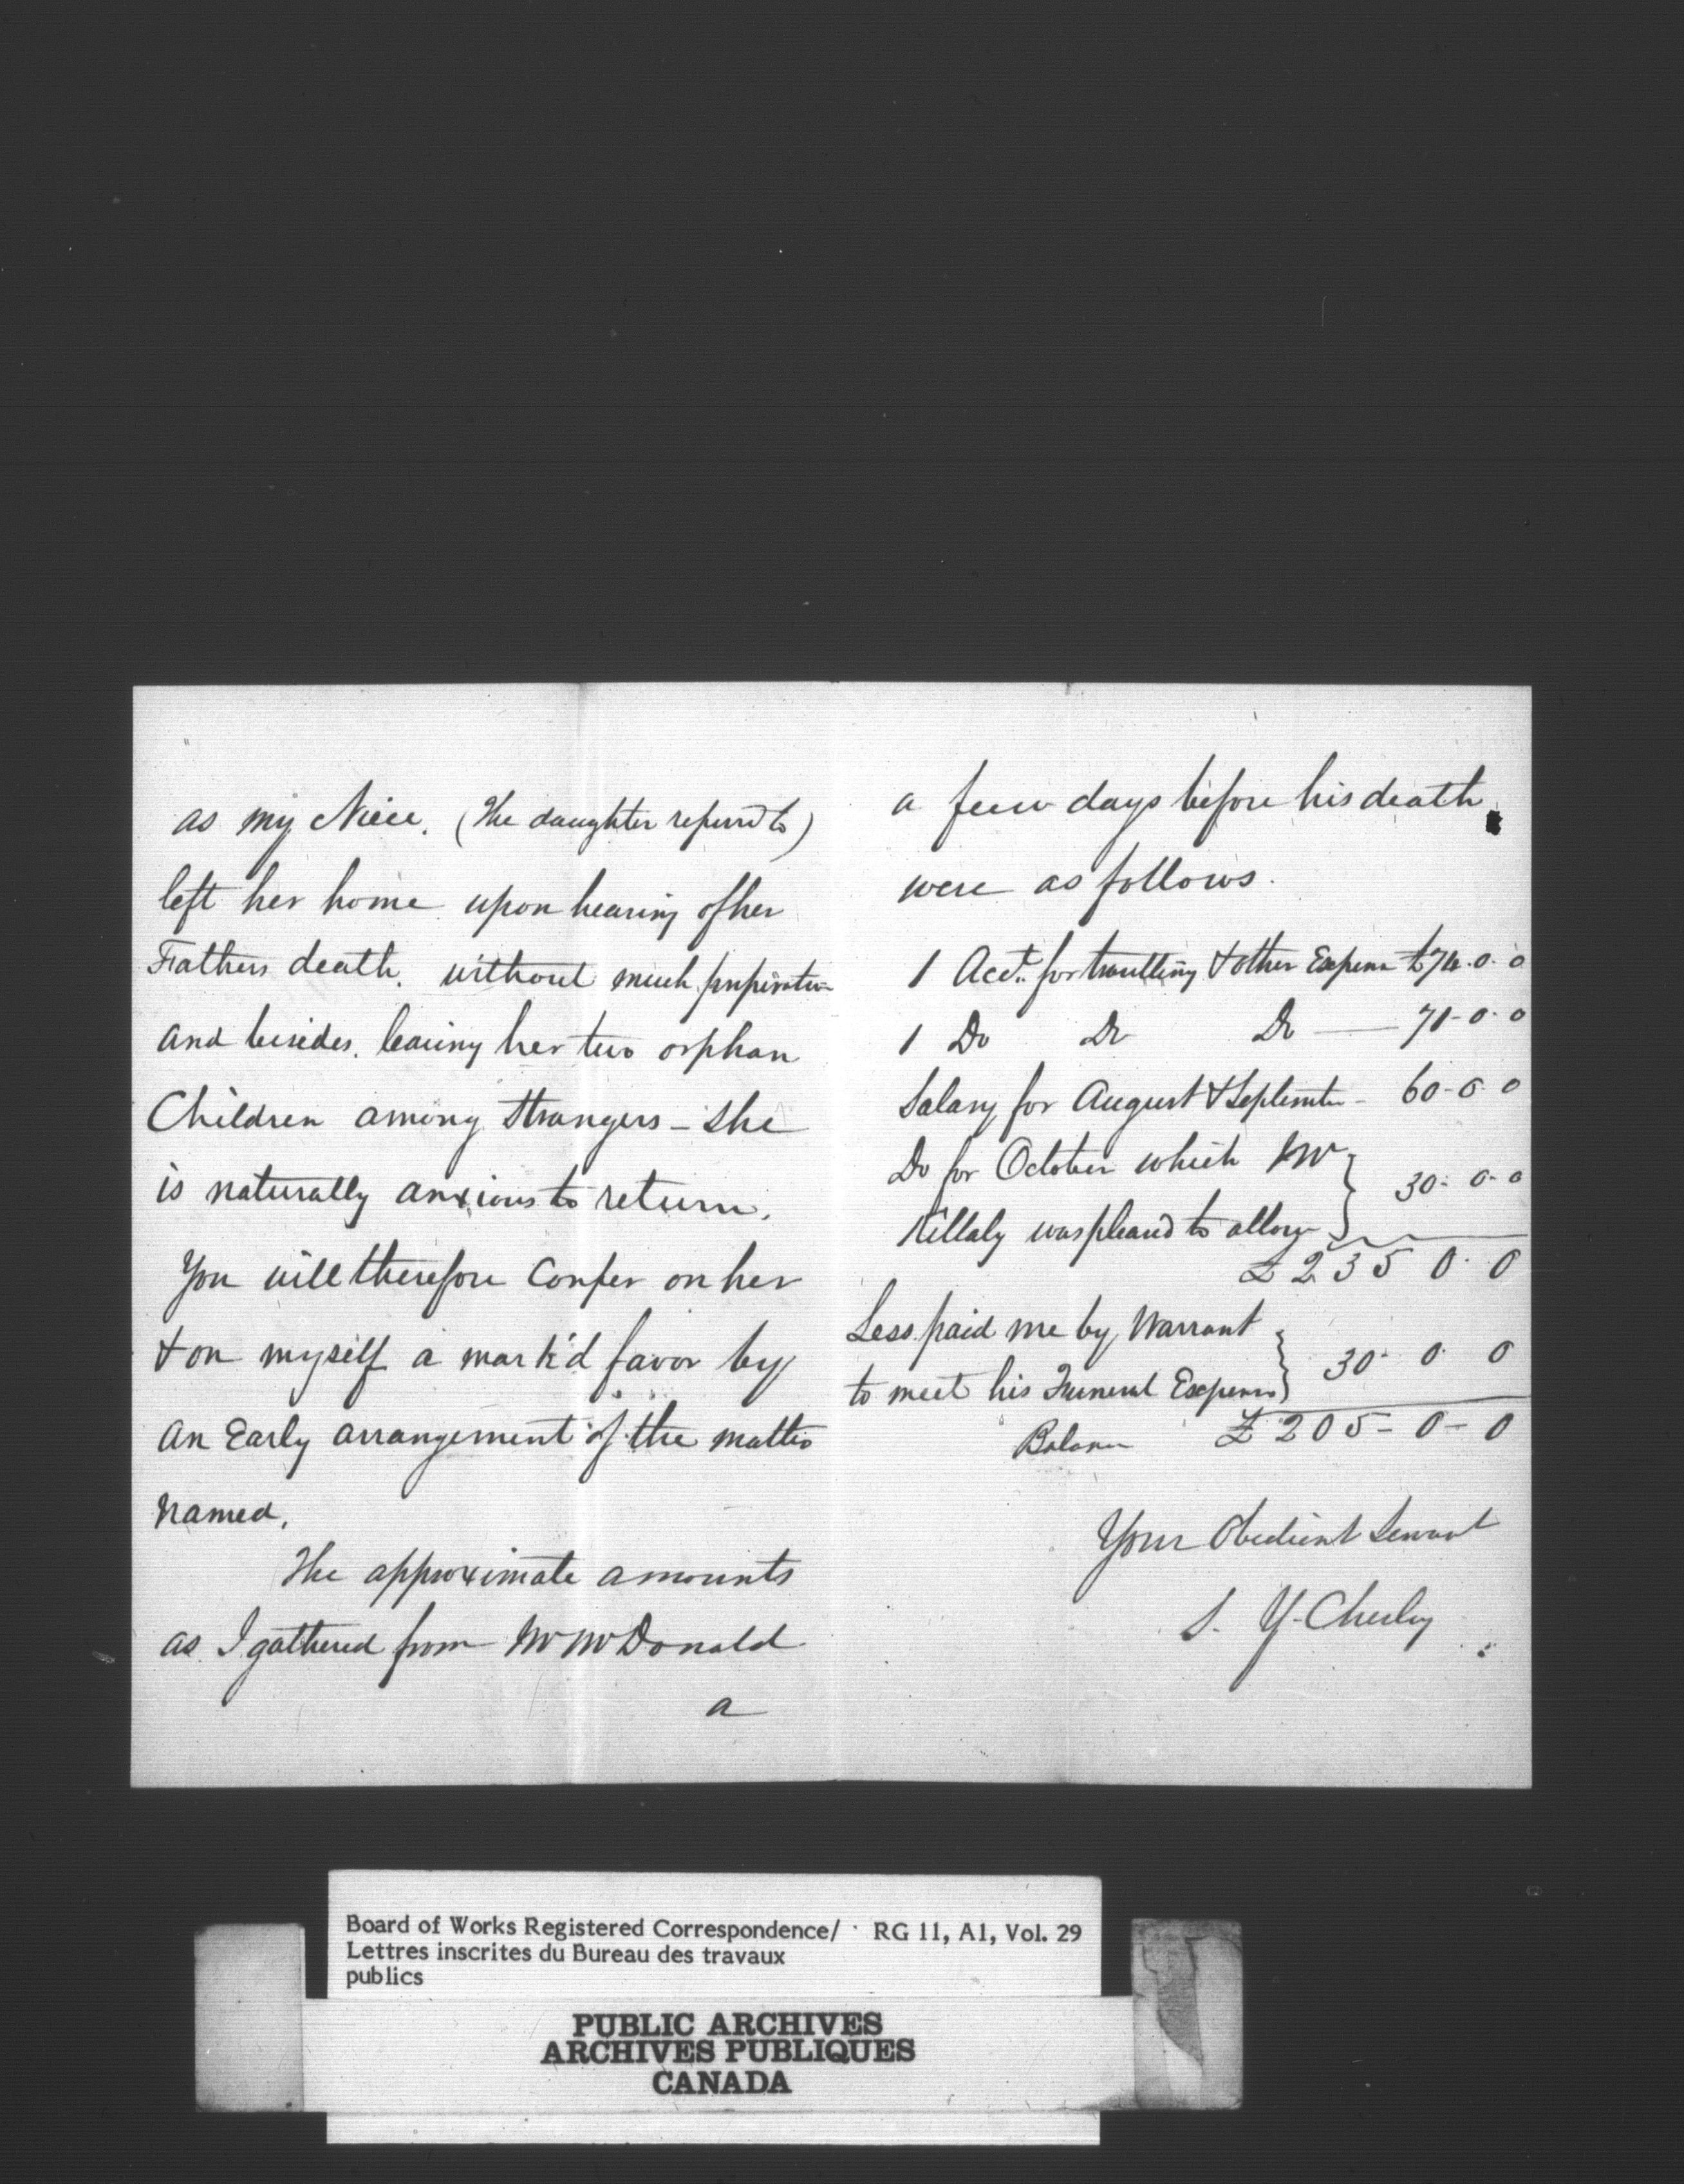 as my Niece. (The daughter referrd to)
left her home upon hearing of her
Fathers death. without much preparation
and besides. leaving her two orphan
Children among Strangers - she
is naturally anxious to return.
You will therefore Confer on her
& on myself a mark'd favor by
an Early arrangement of the matter
named.
The approximate amounts
as I gathered from Mr McDonald
a
a few days before his death
were as follows.
1 Acct. for travelling & other Expense £74.0.0
1 Do Do Do — 71-0-0
Salary for August & September - 60-0-0
Do for October which Mr
Killaly was pleasd to allow } 30-0-0
£235 0. 0
Less paid me by Warrant
to meet his Funeral Expenses } 30- 0. 0
Balance £205-0-0
Your Obedient Servant
S. Y. Chesley
Board of Works Registered Correspondence/ RG 11, A1, Vol. 29
Lettres inscrites du Bureau des travaux
publics
PUBLIC ARCHIVES
ARCHIVES PUBLIQUES
CANADA